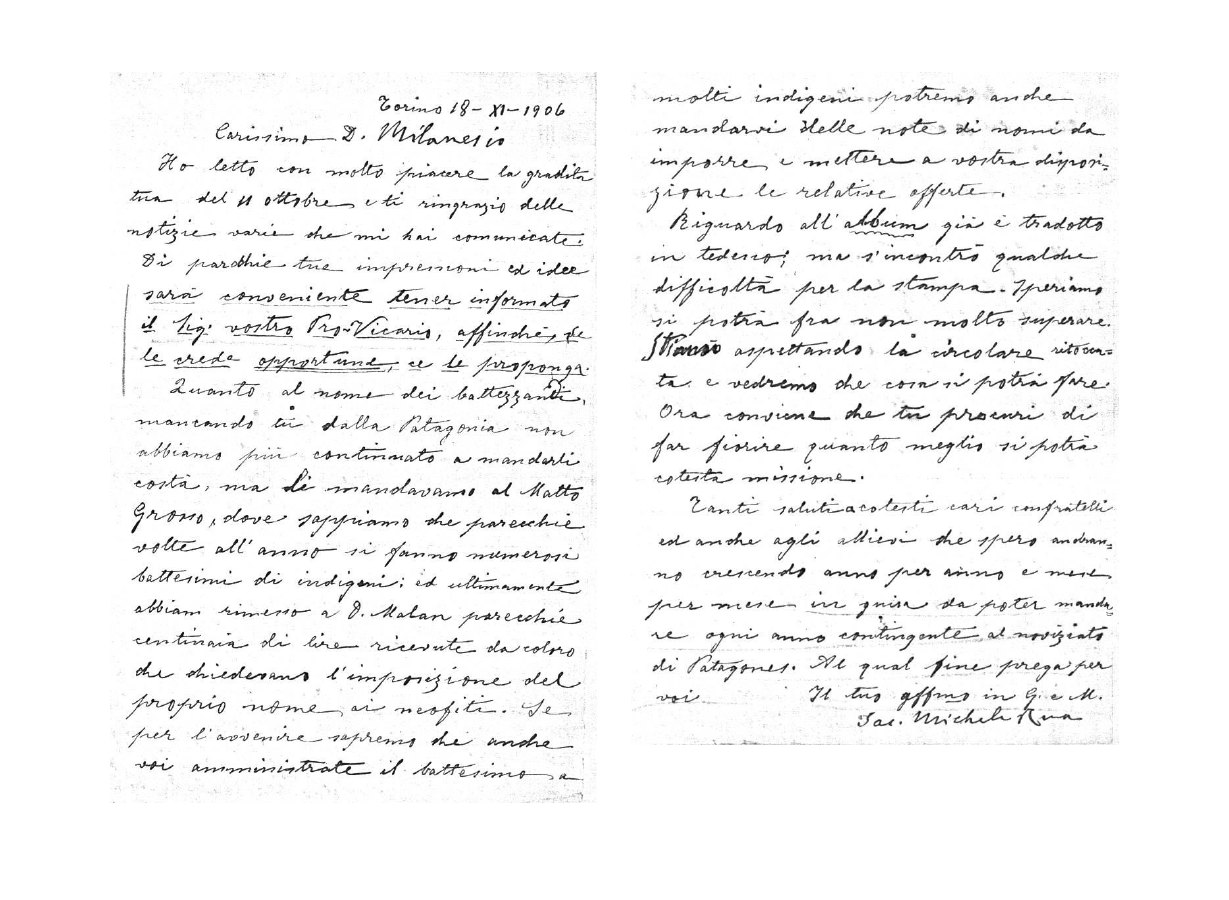 Torino 18-XI-1906
Carissimo D. Milanesio
Ho letto con molto piacere la gradita
tua del 11 ottobre e ti ringrazio delle
notizie varie che mi hai comunicate.
Di parecchie tue impressioni ed idee
sarà conveniente tener informato
il Sig. vostro Pro-Vicario, affinché, se
le crede opportune, ce le proponga.
Quanto al nome dei battezzandi,
mancando tu dalla Patagonia non
abbiamo più continuato a mandarli
costà, ma li mandavamo al Matto
Grosso, dove sappiamo che parecchie
volte all'anno si fanno numerosi
battesimi di indigeni; ed ultimamente
abbiam rimesso a D. Malan parecchie
centinaia di lire ricevute da coloro
che chiedevano l'imposizione del
proprio nome ai neofiti. Se
per l'avvenire sapremo che anche
voi amministrate il battesimo a
molti indigeni potremo anche
mandarvi delle note di nomi da
imporre e mettere a vostra disposi=
zione le relative offerte.
Riguardo all'album già è tradotto
in tedesco; ma s'incontrò qualche
difficoltà per la stampa. Speriamo
si potrà fra non molto superare.
aspettando la circolare ritocca=
ta e vedremo che cosa si potrà fare.
Ora conviene che tu procuri di
far fiorire quanto meglio si potrà
cotesta missione.
Tanti saluti a cotesti cari confratelli
ed anche agli allievi che spero andran=
no crescendo anno per anno e mese
per mese in guisa da poter manda=
re ogni anno contingente al noviziato
di Patagones. Al qual fine prega per
voi Il tuo affmo in G. e M.
Sac. Michele Rua